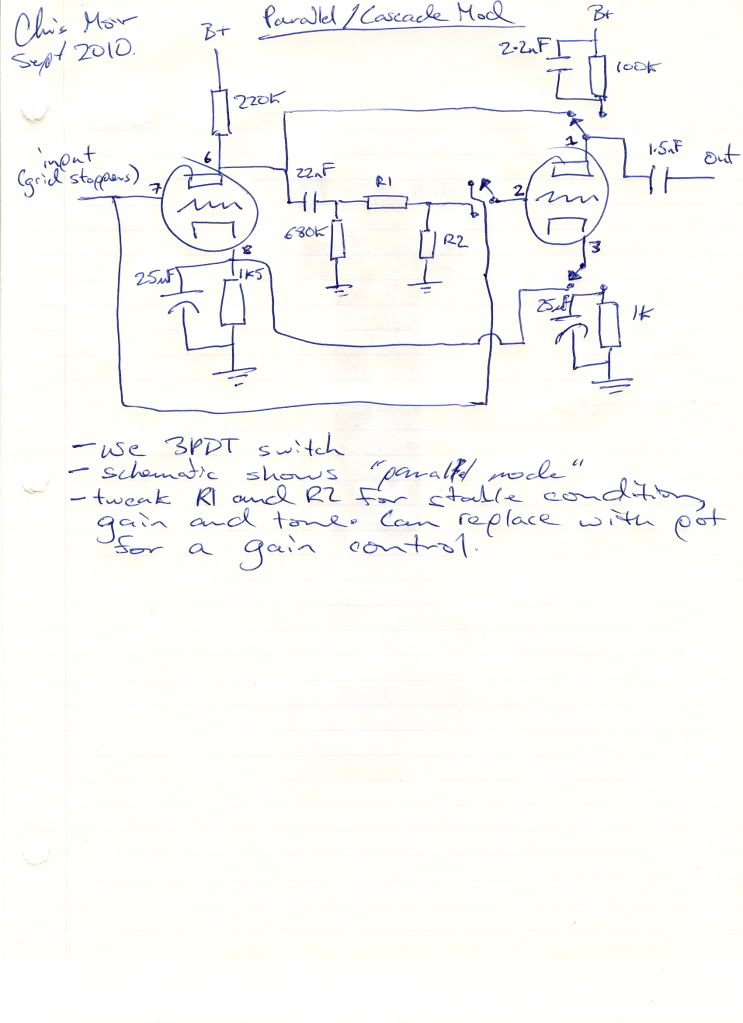 Chris Mor
Sept 2010.
Parallel/Cascade Mod
B+
B+
2.2nF
100K
220K
input
(grid stoppers)
7
6
22nF
R1
680K
R2
2
1
1.5nF
out
3
8
25uF
1K5
25uF
1K
- use 3PDT switch
- schematic shows "parallel mode"
- tweak R1 and R2 for stable condition,
gain and tone. Can replace with pot
for a gain control.